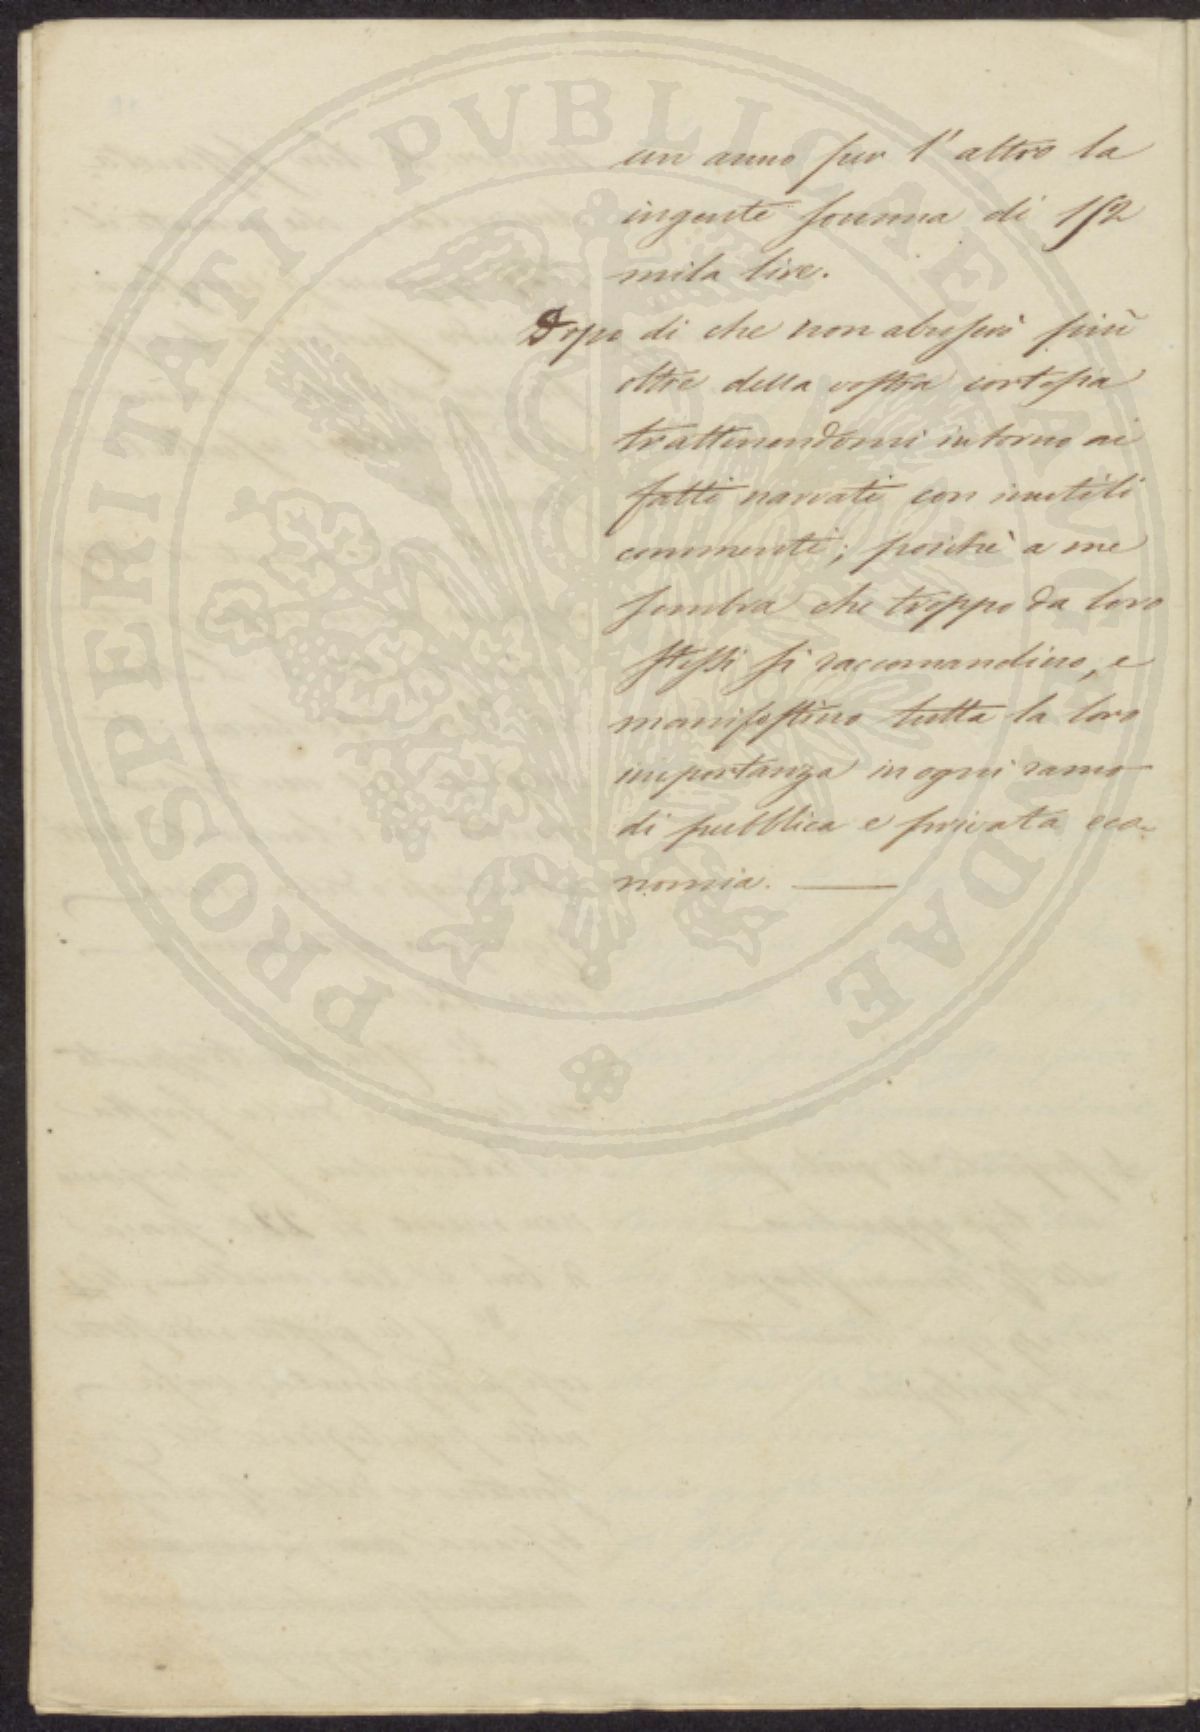 un anno per l'altro la
ingente somma di 152
mila lire.
Dopo di che non abuserò più
oltre della vostra cortesia
trattenendomi intorno ai
fatti narrati con inutili
commenti; poichè a me
sembra che troppo da loro
stessi si raccomandino, e
manifestino tutta la loro
importanza in ogni ramo
di pubblica e privata eco-
nomia.
PROSPERITATI PVBLICAE AVGENDAE